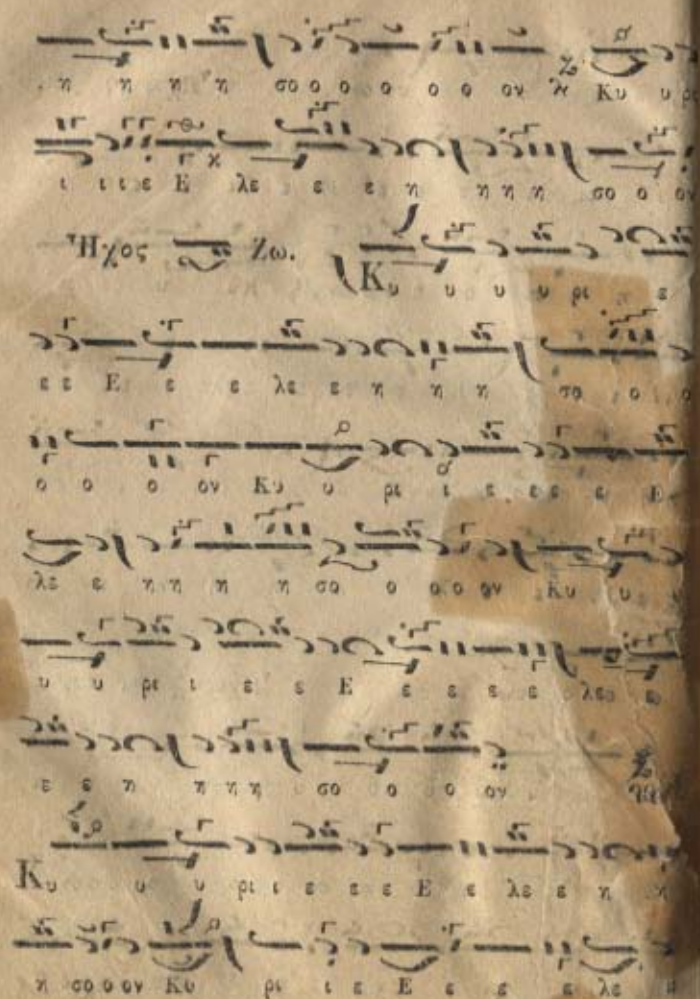 η η η η σο ο ο ο ο ο ο ον Κυ υ ρι
ι ι ι ε Ε λε ε ε η η η η σο ο ο
Ἦχος Ζω. Κυ υ υ υ ρι ε
ε ε Ε ε ε λε ε η η η σο ο ο
ο ο ο ον Κυ υ ρι ι ε ε ε ε Ε
λε ε η η η η σο ο ο ο ον Κυ υ
υ υ ρι ι ε ε Ε ε ε ε ε λε ε
ε ε η η η η σο ο ο ο ον
Κυ υ υ ρι ι ε ε ε ε Ε ε λε ε η η
η σο ο ον Κυ ρι ι ε Ε ε ε ε λε